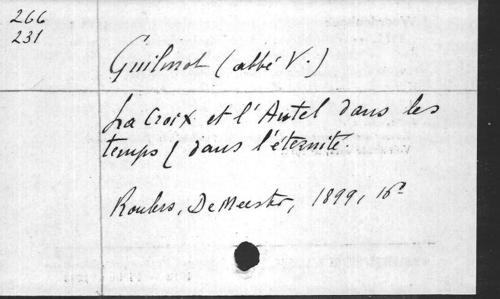 266
231
Guilmot (abbé V.)
La Croix et l'Autel dans les
temps & dans l'éternité.
Roulers, De Meester, 1899, 16°